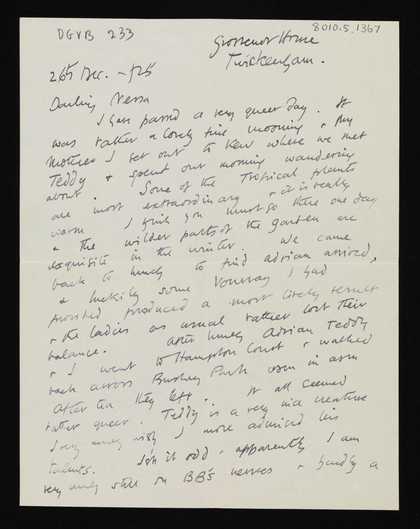 DGVB 233
8010.5.1367
Grosvenor House
Twickenham.
26th Dec. - 1925
Darling Nessa
I have passed a very queer day. It
was rather a lovely fine morning & my
mother & I set out to Kew where we met
Teddy & spent our morning wandering
about. Some of the Tropical plants
are most extraordinary & it is really
warm. I think you must go there one day
& the wilder parts of the garden are
exquisite in the winter. We came
back to lunch to find Adrian arrived,
& luckily some Vouvray I had
provided produced a most lively result
& the ladies as usual rather lost their
balance. After lunch Adrian Teddy
& I went to Hampton Court & walked
back across Bushey Park arm in arm
After tea they left. It all seemed
rather queer. Teddy is a very nice creature
I very much wish I more admired his
talents. Isn't it odd - apparently I am
very much still on BB's nerves & hardly a